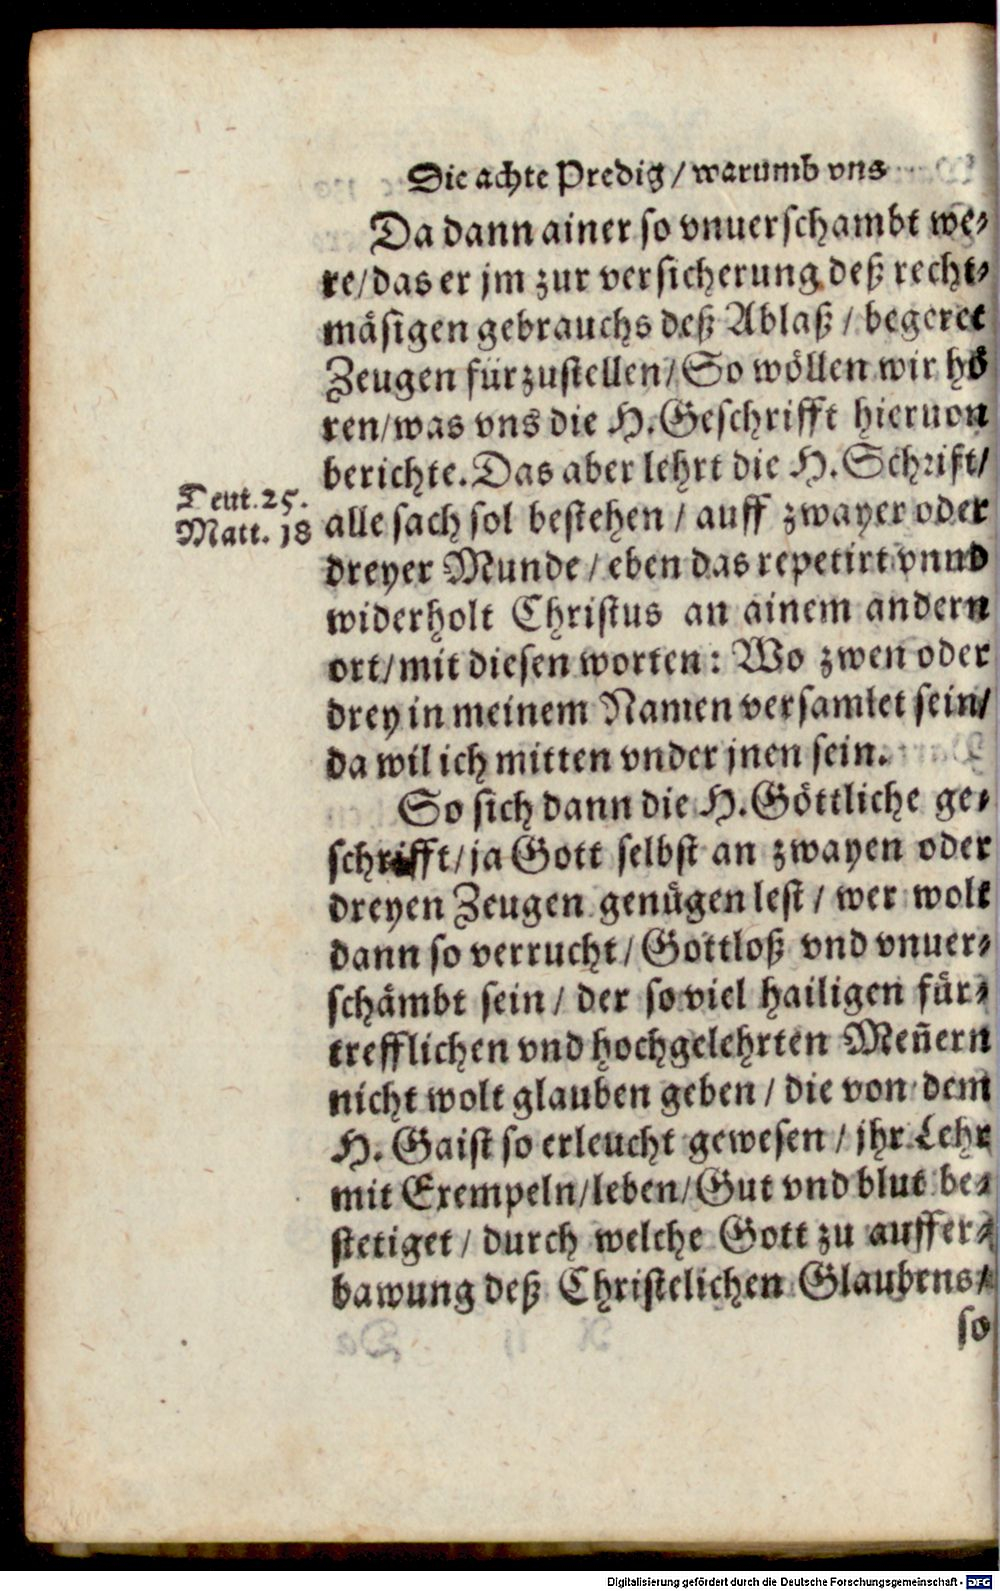 Die achte Predig / warumb vns
Da dann ainer so vnuerschambt we⸗
re/das er jm zur versicherung deß recht⸗
mäsigen gebrauchs deß Ablaß / begeret
Zeugen fürzustellen/ So wöllen wir hö
ren/was vns die H. Geschrifft hieruon
berichte. Das aber lehrt die H. Schrift/
Teut. 25.
Matt. 18
alle sach sol bestehen / auff zwayer oder
dreyer Munde / eben das repetirt vnnd
widerholt Christus an ainem andern
ort/mit diesen worten: Wo zwen oder
drey in meinem Namen versamlet sein/
da wil ich mitten vnder jnen sein.
So sich dann die H. Göttliche ge⸗
schrifft/ja Gott selbst an zwayen oder
dreyen Zeugen genügen lest / wer wolt
dann so verrucht/ Gottloß vnd vnuer⸗
schämbt sein / der so viel hailigen für⸗
trefflichen vnd hochgelehrten Men̄ern
nicht wolt glauben geben / die von dem
H. Gaist so erleucht gewesen / jhr Lehr
mit Exempeln/leben/Gut vnd blut be⸗
stetiget / durch welche Gott zu auffer⸗
bawung deß Christelichen Glaubens/
so
Digitalisierung gefördert durch die Deutsche Forschungsgemeinschaft - DFG